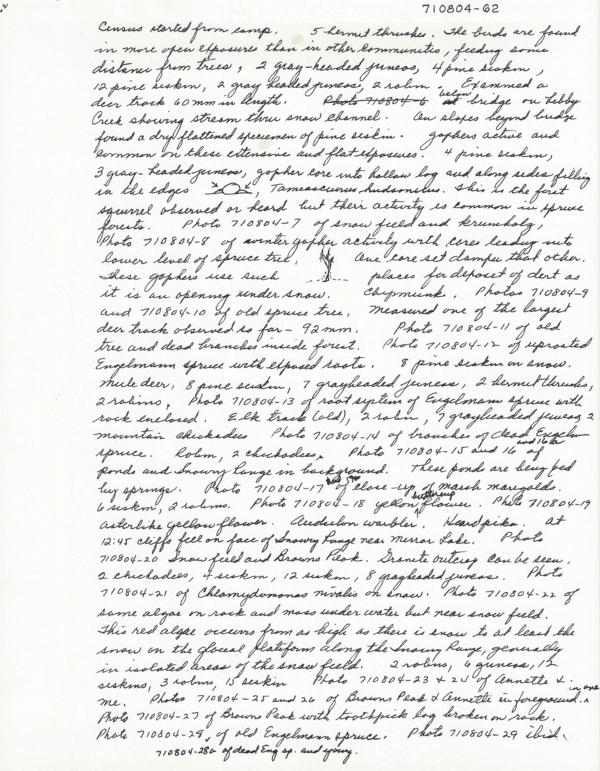 710804-62
Census started from camp. 5 hermit thrushes. The birds are found
in more open exposures than in other communities, feeding some
distance from trees, 2 gray-headed juncos, 4 pine siskin,
12 pine siskin, 2 gray headed juncos, 2 robin. Examined a
deer track 60mm in length. Photo 710804-6 at below bridge on Libby
Creek showing stream thru snow channel. On slopes beyond bridge
found a dry flattened specimen of pine siskin. gophers active and
common on these extensive and flat exposures. 4 pine siskin,
3 gray-headed juncos, gopher core into hollow log and along sides filling
in the edges , Tamiasciurus hudsonicus. This is the first
squirrel observed or heard but their activity is common in spruce
forests. Photo 710804-7 of snow field and krumholz,
Photo 710804-8 of winter gopher activity with cores leading into
lower level of spruce tree. One core set damper than other.
These gophers use such places for deposit of dirt as
it is an opening under snow. Chipmunk. Photos 710804-9
and 710804-10 of old spruce tree, measured one of the largest
deer track observed so far - 92mm. Photo 710804-11 of old
tree and dead branches inside forest. Photo 710804-12 of uprooted
Engelmann spruce with exposed roots. 8 pine siskin on snow.
Mule deer, 8 pine siskin, 7 grayheaded juncos, 2 hermit thrushes,
2 robins, Photo 710804-13 of root system of Engelmann spruce with
rock enclosed. Elk track (old), 2 robin, 7 grayheaded juncos, 2
mountain chickadees Photo 710804-14 of branches of dead Engelm
spruce. Robin, 2 chickadees, Photo 710804-15 and 16 of
ponds and Snowy Range in background. These ponds are being fed
by springs. Photo 710804-17 of close-up of marsh marigolds.
6 siskin, 2 robins. Photo 710804-18 yellow buttercup flower. Photo 710804-19
asterlike yellow flower. Audubon warbler. Heard pika. At
12:45 cliffs fell on face of Snowy Range near Mirror Lake. Photo
710804-20 Snow field and Browns Peak. Granite outcrop can be seen.
2 chickadees, 4 siskin, 12 siskin, 8 grayheaded juncos. Photo
710804-21 of Chlamydomonas nivalis on snow. Photo 710804-22 of
some algae on rock and moss under water but near snow field.
This red algae occurs from as high as there is snow to at least the
snow on the glacial platform along the Snowy Range, generally
in isolated areas of the snow field. 2 robins, 6 juncos, 12
siskins, 3 robins, 15 siskin Photo 710804-23 & 24 of Annette &
me. Photos 710804-25 and 26 of Browns Peak & Annette in foreground in one.
Photo 710804-27 of Browns Peak with toothpick log broken on rock.
Photo 710804-28, of old Engelmann spruce. Photo 710804-29 ibid.
710804-28a of dead Eng sp. and young.